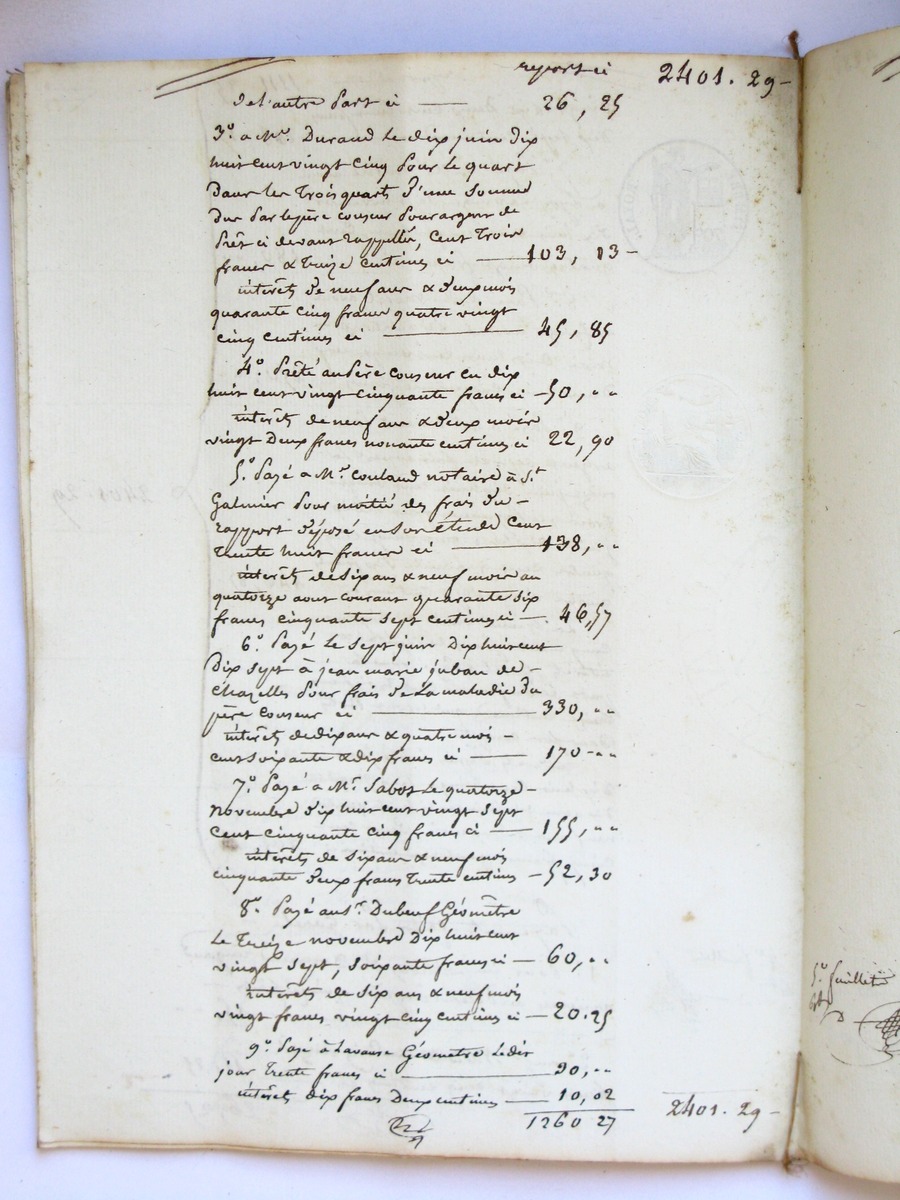 report ci 2401. 29 -
de l'autre part ci — 26, 25
3o. a Mr. Durand le dix juin dix
huit cent vingt cinq pour le quart
dans les trois quarts d'une somme
due par le père couseur pour argent de
prêt ci devant rappellée, cent trois
francs & treize centimes ci — 103, 13 -
intérêts de neuf ans & deux mois
quarante cinq francs quatre vingt
cinq centimes ci — 45, 85
4o. Prêté au père couseur en dix
huit cent vingt cinquante francs ci - 50, " "
intérêts de neuf ans & deux mois
vingt deux francs nonante centimes ci 22, 90
5o. Payé a Mr. Couland notaire à St.
Galmier pour moitié des frais du -
rapport déposé en son étude Cent
trente huit francs ci — 138, " "
intérêts de six ans & neuf mois au
quatorze aout courant quarante six
francs cinquante sept centimes ci — 46,57
6o. Payé le sept juin dix huit cent
dix sept à jean marie juban de -
Chazelles pour frais de la maladie du
père couseur ci — 330, " "
intérêts de dix ans & quatre mois -
cent soixante & dix francs ci — 170 - " "
7o. Payé a Mr. Sabot le quatorze -
novembre dix huit cent vingt sept
cent cinquante cinq francs ci — 155, " "
intérêts de six ans & neuf mois
cinquante deux francs trente centimes - 52, 30
8o. Payé au Sr. Dubeuf Géomètre
le treize novembre dix huit cent
vingt sept, soixante francs ci — 60, " "
intérêts de six ans & neuf mois
vingt francs vingt cinq centimes ci — 20.25
9o. Payé à Lavause Géometre ledit
jour trente francs ci — 30, " "
intérêts dix francs deux centimes — 10, 02
1260 27 2401. 29 -
5e. feuillet